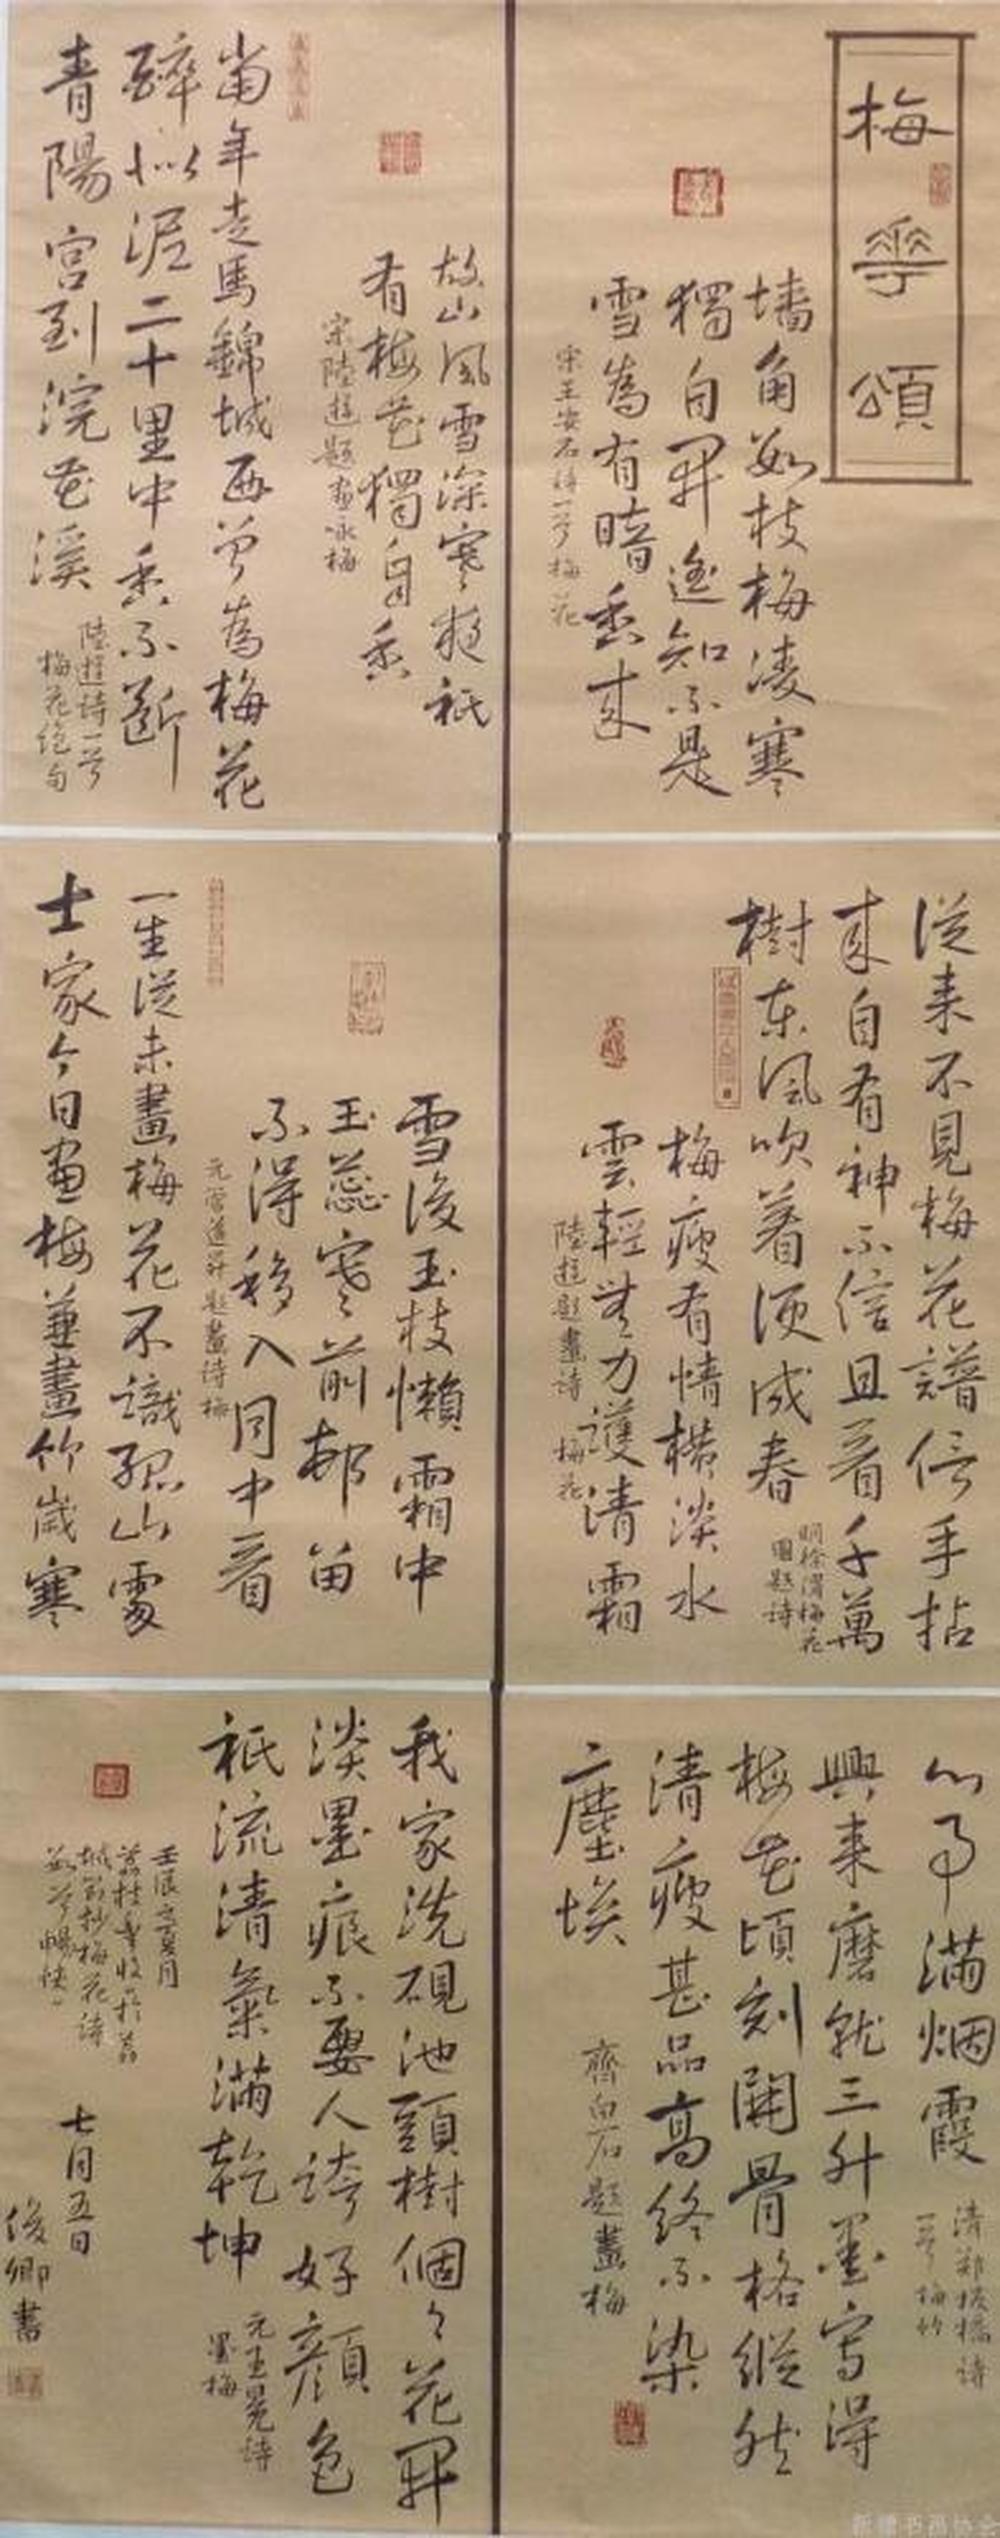 梅華頌
墙角数枝梅凌寒
獨自開遥知不是
雪為有暗香来
宋王安石詩一首梅花
故山風雪深寒夜祇
有梅花獨自香
宋陸游題畫咏梅
當年走馬錦城西曾為梅花
醉似泥二十里中香不斷
青陽宫到浣花溪
陸游詩一首
梅花绝句
從来不見梅花譜信手拈
来自有神不信且看千萬
樹東風吹着便成春
明徐渭梅花
圖題詩
梅瘦有情横淡水
雲輕無力護清霜
陸游題畫詩 梅花
雪後玉枝懶霜中
玉蕊寒前邨留
不得移入月中看
元管道昇題畫詩梅
一生從未畫梅花不識孤山處
士家今日畫梅兼畫竹歲寒
心事滿烟霞
清鄭板橋詩
一首梅竹
興来磨就三升墨寫得
梅花頃刻開骨格縱然
清瘦甚品高終不染
一塵埃
齊白石題畫梅
我家洗硯池頭樹個々花開
淡墨痕不要人誇好顏色
祇流清氣滿乾坤
元王冕詩
墨梅
壬辰之夏月
七月五日
俊卿書